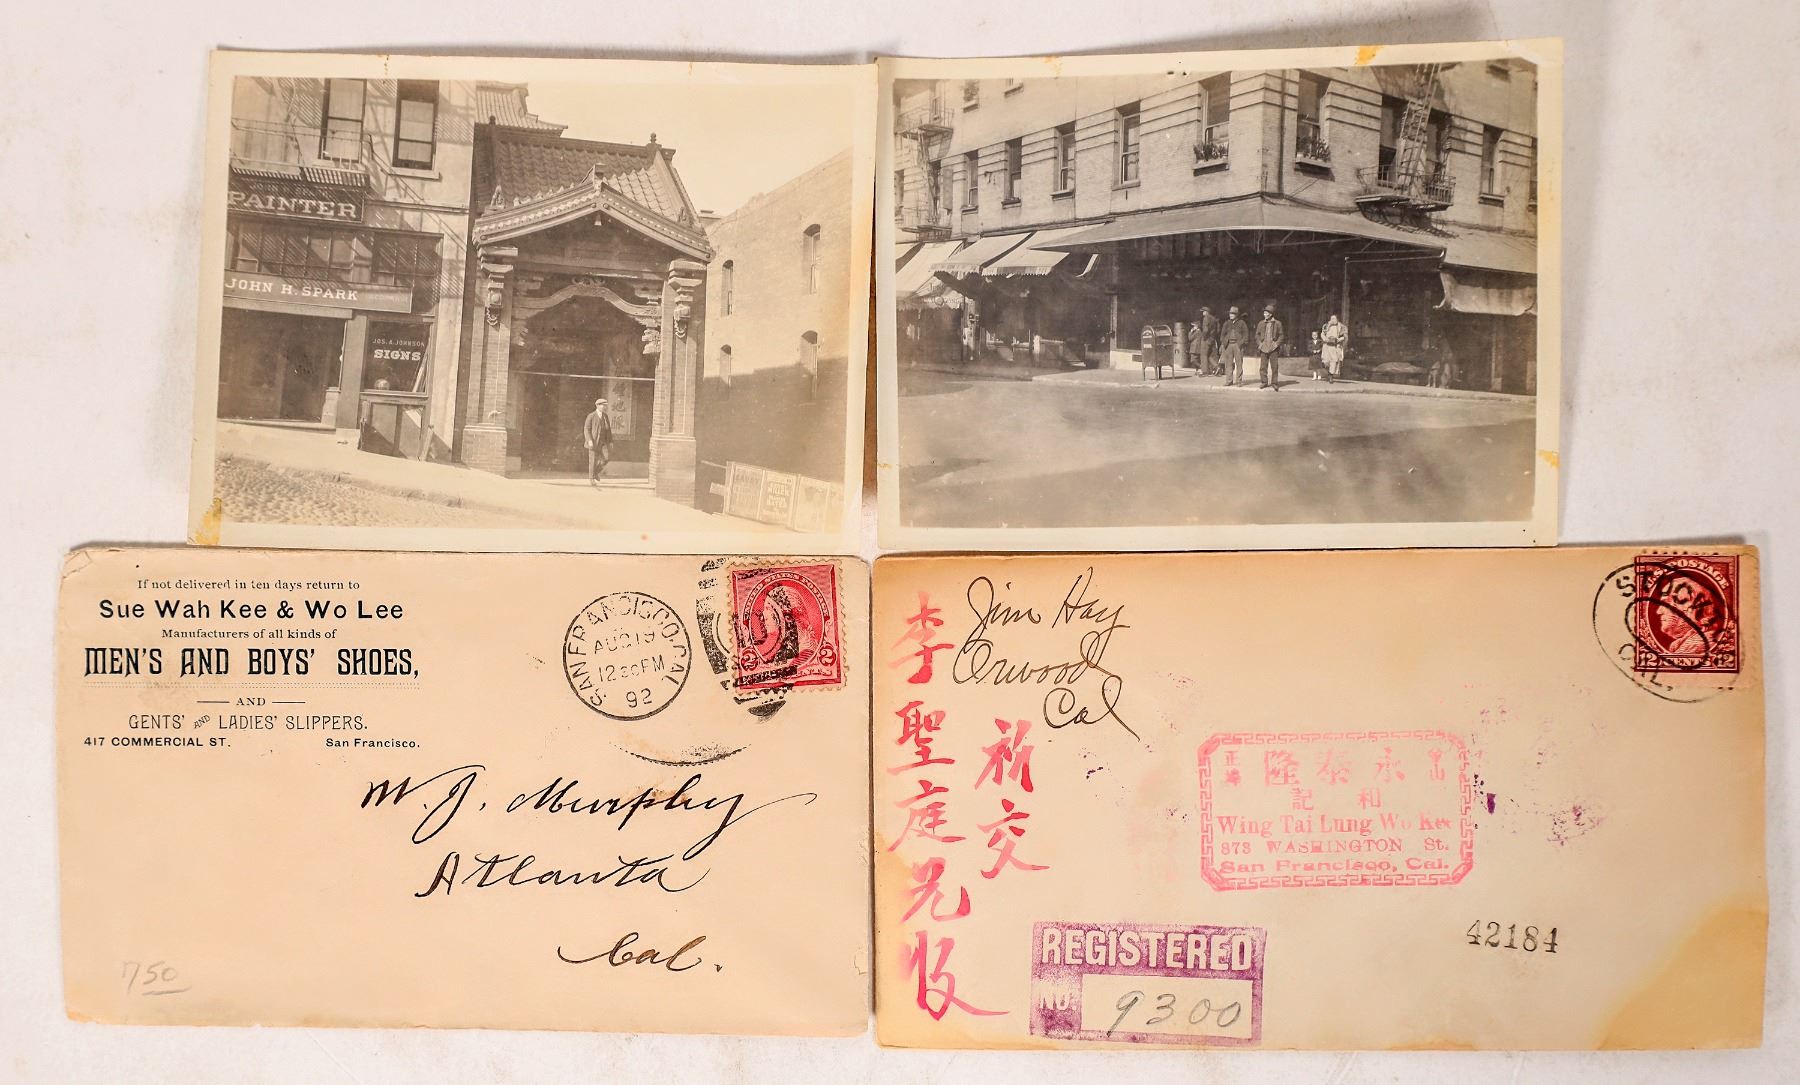 PAINTER
JOHN H. SPARK
JOS. A. JOHNSON
SIGNS
If not delivered in ten days return to
Sue Wah Kee & Wo Lee
Manufacturers of all kinds of
MEN'S AND BOYS' SHOES,
AND
GENTS' AND LADIES' SLIPPERS.
417 COMMERCIAL ST. San Francisco.
SAN FRANCISCO, CAL
AUG 19
12 30 PM
92
2 2
M. J. Murphy
Atlanta
Cal.
750
Jim Hay
Orwood
Cal
李聖庭兄收
祈交
U.S. POSTAGE
12 CENTS 12
STOCKTON
CAL.
金山 永泰隆 正埠
和記
Wing Tai Lung Wo Kee
873 WASHINGTON St.
San Francisco, Cal.
42184
REGISTERED
NO. 9300